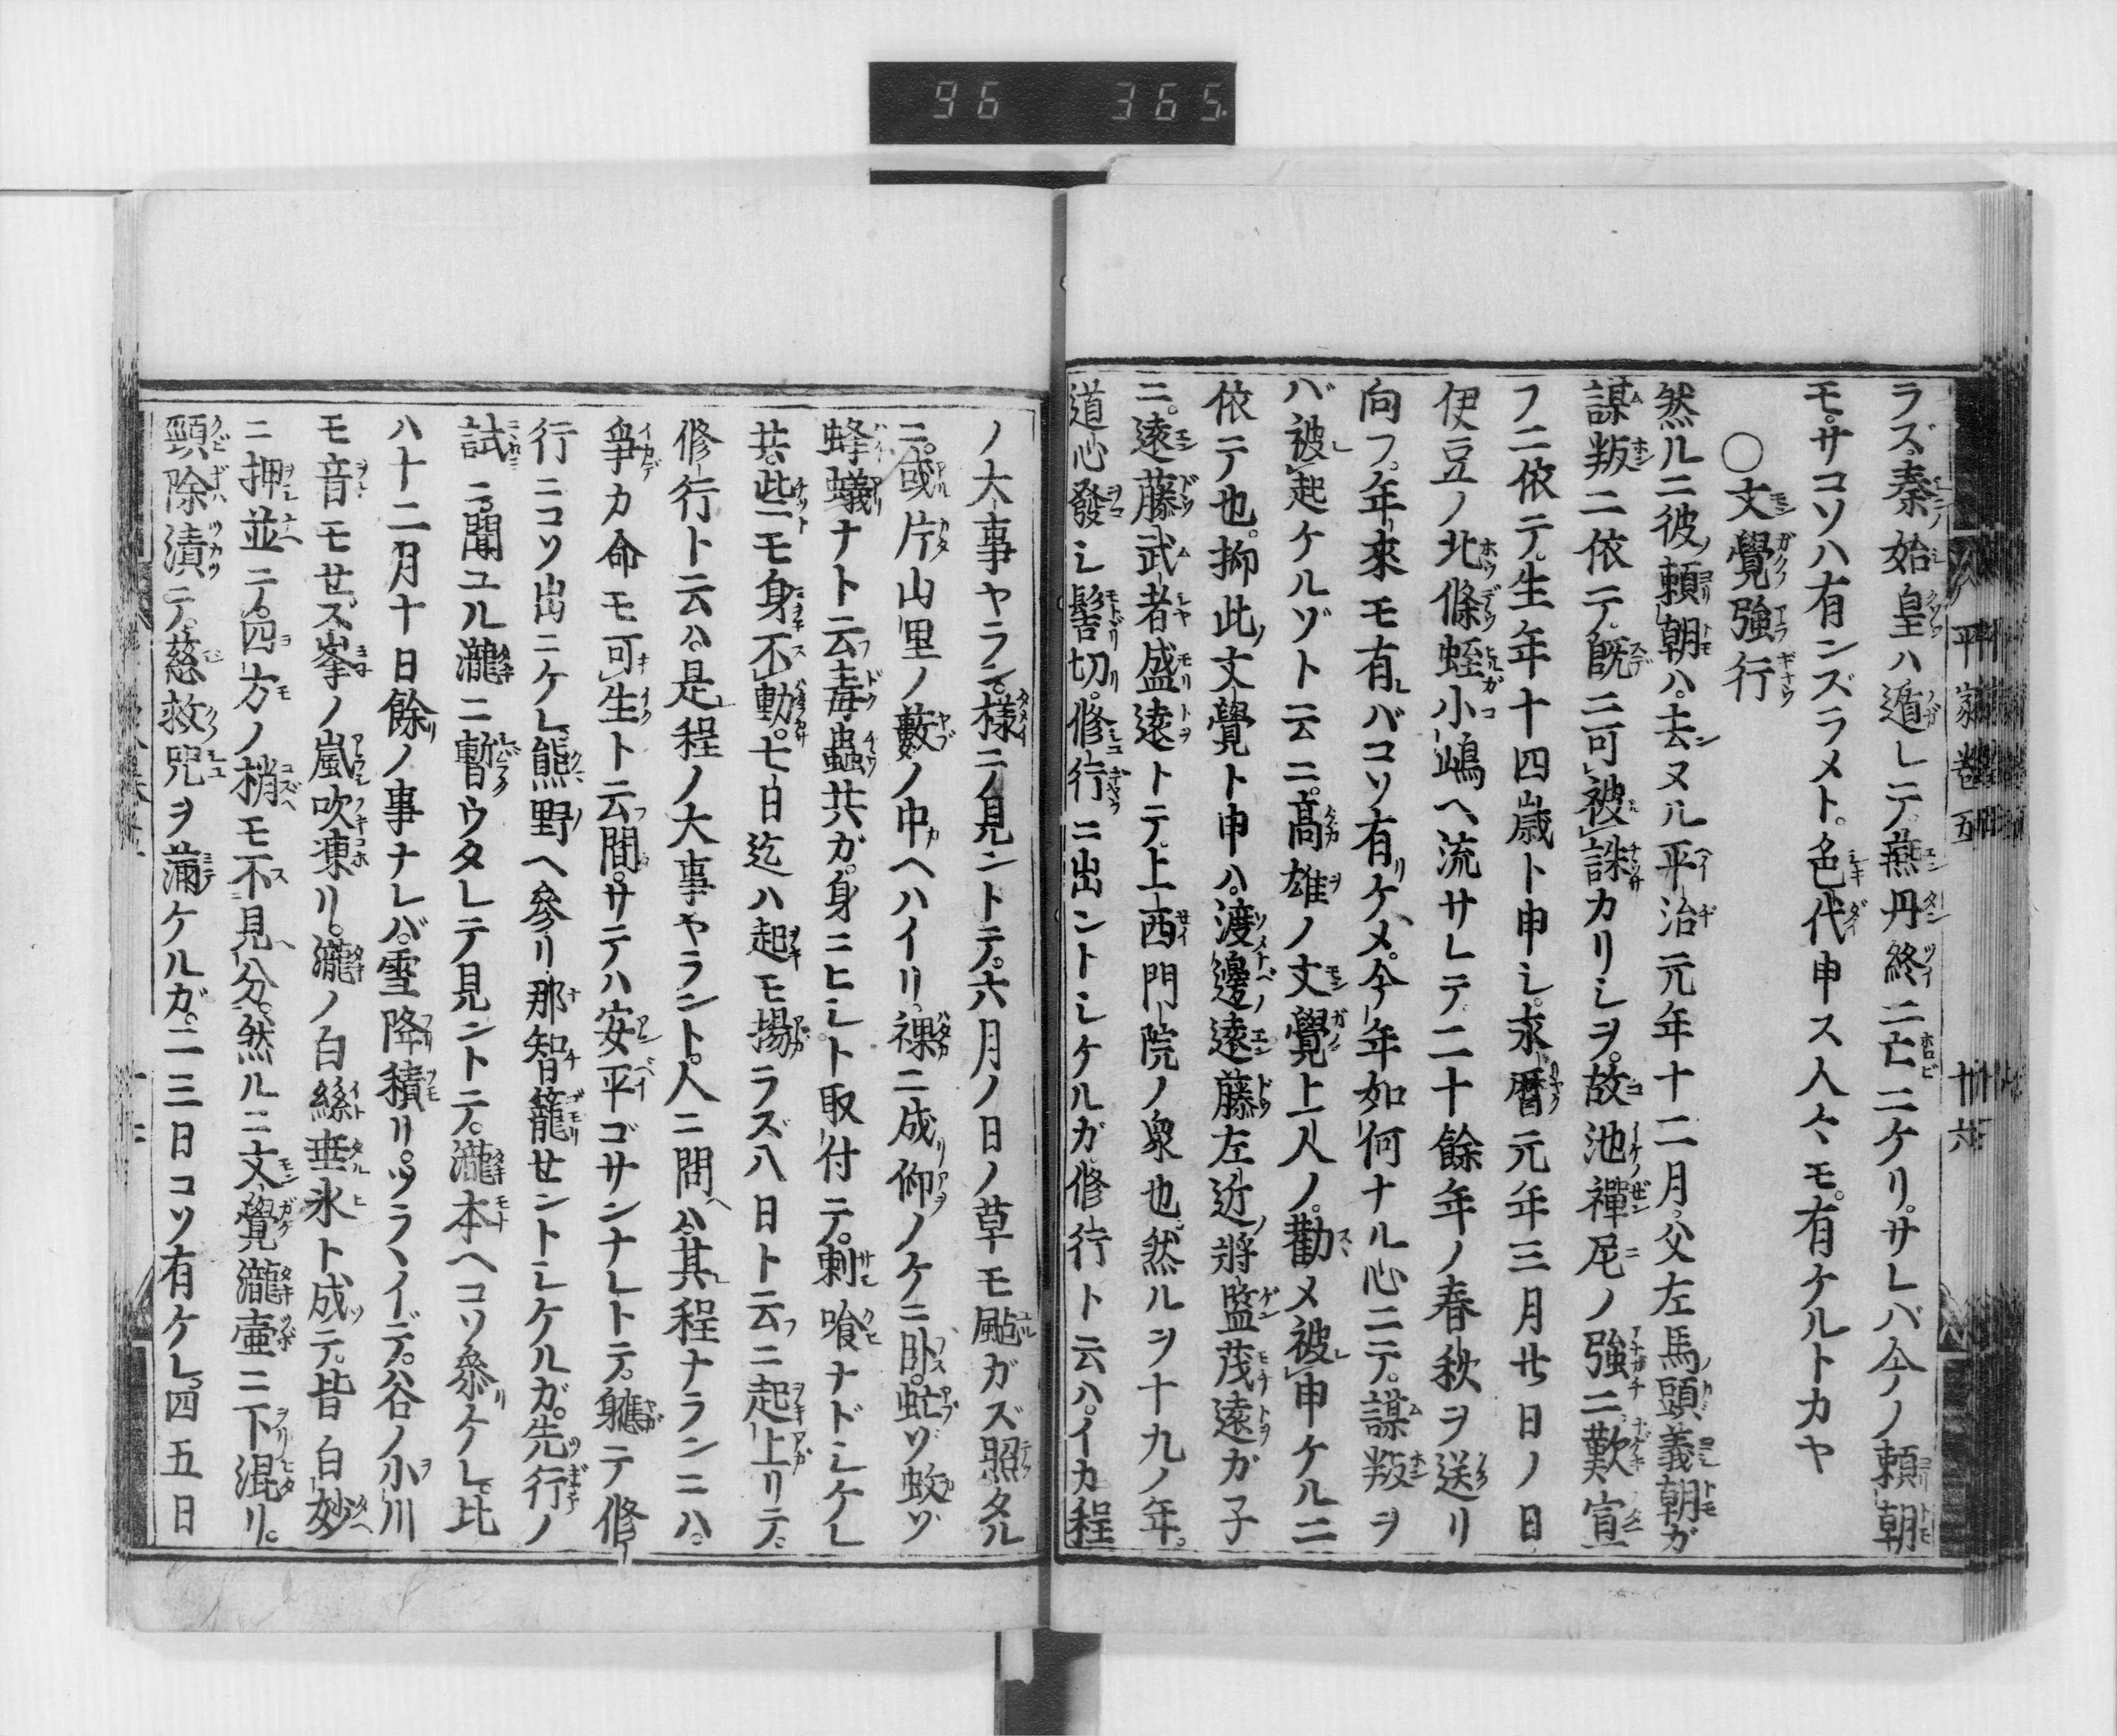 96 365
ラズ秦始皇ハ遁レテ燕丹終ニ亡ニケリ。サレバ今ノ頼朝
モサコソハ有ンズラメト。色代申ス人々モ有ケルトカヤ
〇文覺強行
然ルニ彼頼朝ハ。去ヌル平治元年十二月父左馬頭義朝ガ
謀叛ニ依テ。既ニ可被誅カリシヲ。故池禪尼ノ強ニ歎宣
フニ依テ。生年十四歳ト申シ永暦元年三月廿日ノ日
伊豆ノ北條蛭小嶋ヘ流サレテ二十餘年ノ春秋ヲ送リ
向フ。年來モ有バコソ有ケメ。今年如何ナル心ニテ。謀叛ヲ
バ被起ケルゾト云ニ。髙雄ノ文覺上人ノ。勸メ被申ケルニ
依テ也。抑此文覺ト申ハ。渡邊遠藤左近將監茂遠ガ子
ニ。遠藤武者盛遠トテ。上西門院ノ衆也。然ルヲ十九ノ年。
道心發シ髻切。修行ニ出ントシケルガ修行ト云ハ。イカ程
平家巻五 廿六
ノ大事ヤラン。樣ニ見ントテ。六月ノ日ノ草モ颭ガズ照タル
ニ。或片山里ノ藪ノ中ヘハイリ。裸ニ成仰ノケニ卧。虻ゾ蚊ゾ
蜂蟻ナト云毒蟲共ガ。身ニヒシト取付テ。刺喰ナドシケレ
共。些モ身不動。七日迄ハ起モ揚ラズ八日ト云ニ起上リテ。
修行ト云ハ是程ノ大事ヤラント。人ニ問ハ其程ナランニハ。
爭カ命モ可生ト云間。サテハ安平ゴサンナレトテ。軈テ修
行ニコソ出ニケレ熊野ヘ參リ那智籠セントシケルガ。先行ノ
試ニ聞ユル瀧ニ暫ウタレテ見ントテ。瀧本ヘコソ參ケレ比
ハ十二月十日餘ノ事ナレバ。雪降積リ。ツラヽイデ。谷ノ小川
モ音モせズ峯ノ嵐吹凍リ。瀧ノ白絲垂氷ト成テ。皆白妙
ニ押並テ。四方ノ梢モ不見分。然ルニ文覺瀧壷ニ下混リ。
頸際漬テ。慈救咒ヲ滿ケルガ。二三日コソ有ケレ四五日